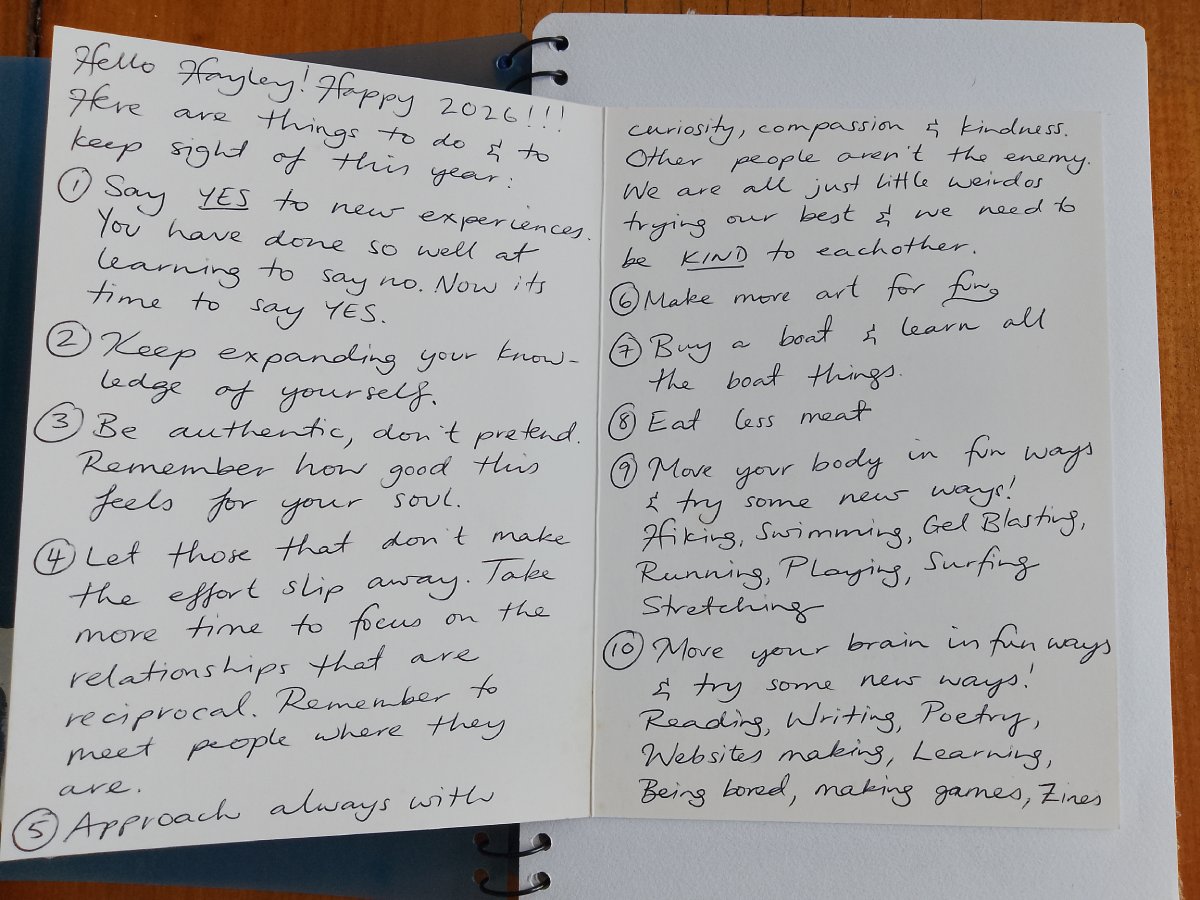 Hello Hayley! Happy 2026!!!
Here are things to do & to
keep sight of this year:
① Say YES to new experiences.
You have done so well at
learning to say no. Now its
time to say YES.
② Keep expanding your know-
ledge of yourself.
③ Be authentic, don't pretend.
Remember how good this
feels for your soul.
④ Let those that don't make
the effort slip away. Take
more time to focus on the
relationships that are
reciprocal. Remember to
meet people where they
are.
⑤ Approach always with
curiosity, compassion & kindness.
Other people aren't the enemy.
We are all just little weirdos
trying our best & we need to
be KIND to eachother.
⑥ Make more art for fun
⑦ Buy a boat & learn all
the boat things.
⑧ Eat less meat
⑨ Move your body in fun ways
& try some new ways!
Hiking, Swimming, Gel Blasting,
Running, Playing, Surfing
Stretching
⑩ Move your brain in fun ways
& try some new ways!
Reading, Writing, Poetry,
Websites making, Learning,
Being bored, making games, Zines